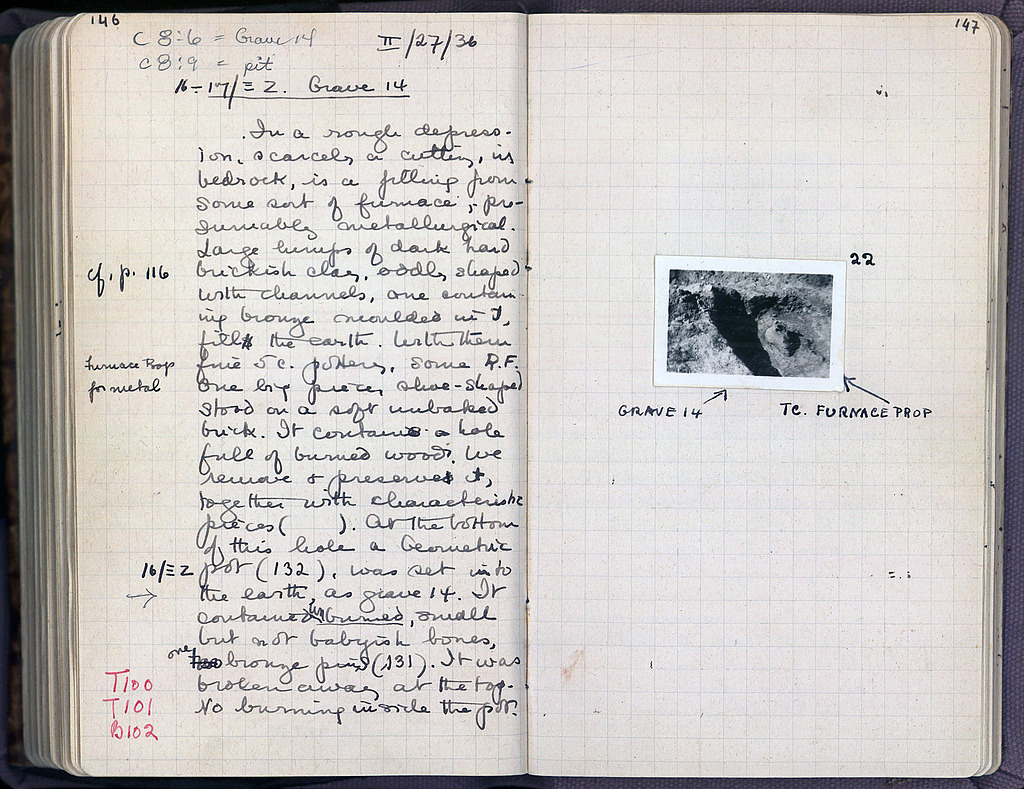 146
C 8:6 = Grave 14
II/27/36
C 8:9 = pit
16-17/ΞΖ. Grave 14
In a rough depress-
ion, scarcely a cutting, in
bedrock, is a filling from
some sort of furnace, pre-
sumably metallurgical.
Large lumps of dark hard
cf. p. 116
brickish clay, oddly shaped
with channels, one contain-
ing bronze moulded in it,
fill the earth. With them
Furnace Prop
for metal
fine 5 c. pottery, some R.F.
One big piece, shoe-shaped
stood on a soft unbaked
brick. It contains a hole
full of burned wood. We
remove & preserve it,
together with characteristic
pieces ( ). At the bottom
of this hole a Geometric
16/ΞΖ
→
pot (132), was set into
the earth, as grave 14. It
contained unburned, small
but not babyish bones,
one bronze pin (131). It was
broken away at the top.
No burning inside the pot.
T100
T101
B102
147
22
GRAVE 14
TC. FURNACE PROP